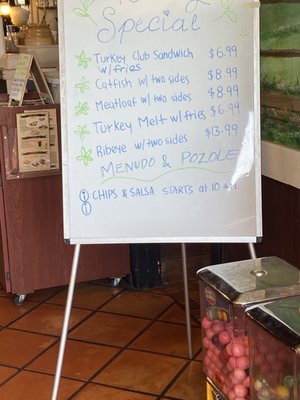 Special
Turkey Club Sandwich $6.99
w/fries
Catfish w/ two sides $8.99
Meatloaf w/ two sides $8.99
Turkey Melt w/ fries $6.99
Ribeye w/ two sides $13.99
MENUDO & POZOLE
CHIPS & SALSA STARTS at 10 AM